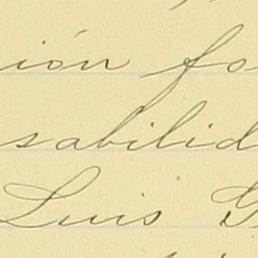 ión fo
sabilid
Luis G